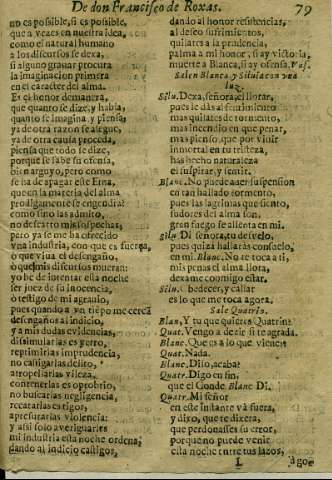 De don Francisco de Roxas. 79
no es possible, si es possible,
que a vezes en nuestra idea,
como el natural humano
a los discursos se dexa,
si alguno gravar procura
la imaginacion primera
en el caracter del alma.
Es el honor de manera,
que quanto se dize, y habla,
quanto se imagina, y piensa,
ya de otra razon se alegue,
ya de otra causa proceda,
piensa que todo se dize,
porque se sabe su ofensa,
bien arguyo, pero como
se ha de apagar este Etna,
que en la materia del alma
prodigamente se engendra?
como sino las admito,
no descarto mis sospechas;
pero ya se me ha ofrecido
vna industria, con que es fuerça,
o que viua el desengaño,
o que mis discursos mueran:
yo he de intentar esta noche
ser juez de su inocencia,
o testigo de mi agrauio,
pues quando a vn tiẽpo me cerca
desengaños al indicio,
y a mis dudas euidencias,
dissimularlas es yerro,
reprimirlas imprudencia,
no castigarlas delito,
atropellarlas vileza,
contenerlas es oprobrio,
no buscarlas negligencia,
recatarlas rigor,
apresurarlas violencia:
y assi solo aueriguarles
mi industria esta noche ordena,
dando al indicio castigos,
dando al honor resistencias,
al deseo sufrimientos,
quilates a la prudencia,
palma a mi honor, si ay victoria,
muerte a Blanca, si ay ofensa. Vas.
Salen Blanca, y Siluia con vna
luz.
Silu. Dexa, señora, el llorar,
pues le dàs al sentimiento
mas quilates de tormento,
mas incendio en que penar,
mas pienso, que por viuir
inmortal en tu tristeza,
has hecho naturaleza
el suspirar, y sentir.
Blanc. No puede auer suspension
en tan hallado tormento,
pues las lagrimas que siento,
sudores del alma son,
gran fuego se alienta en mi.
Silu. Di señora, tu desvelo,
pues quizà hallaràs consuelo,
en mi. Blanc. No te toca a ti,
mis penas el alma llora,
dexame conmigo estar.
Silu. Obedecer, y callar
es lo que me toca agora.
Sale Quatrin.
Blan. Y tu que quieres Quatrin?
Quat. Vengo a dezir si te agrada.
Blanc. Que es a lo que vienes?
Quat. Nada.
Blanc. Dilo, acaba?
Quatr. Digo en fin,
que el Conde Blanc Di.
Quatr. Mi señor
en este instante và fuera,
y dixo, que te dixera,
que perdonasses su error,
porque no puede venir
esta noche entre tus lazos,
L ago